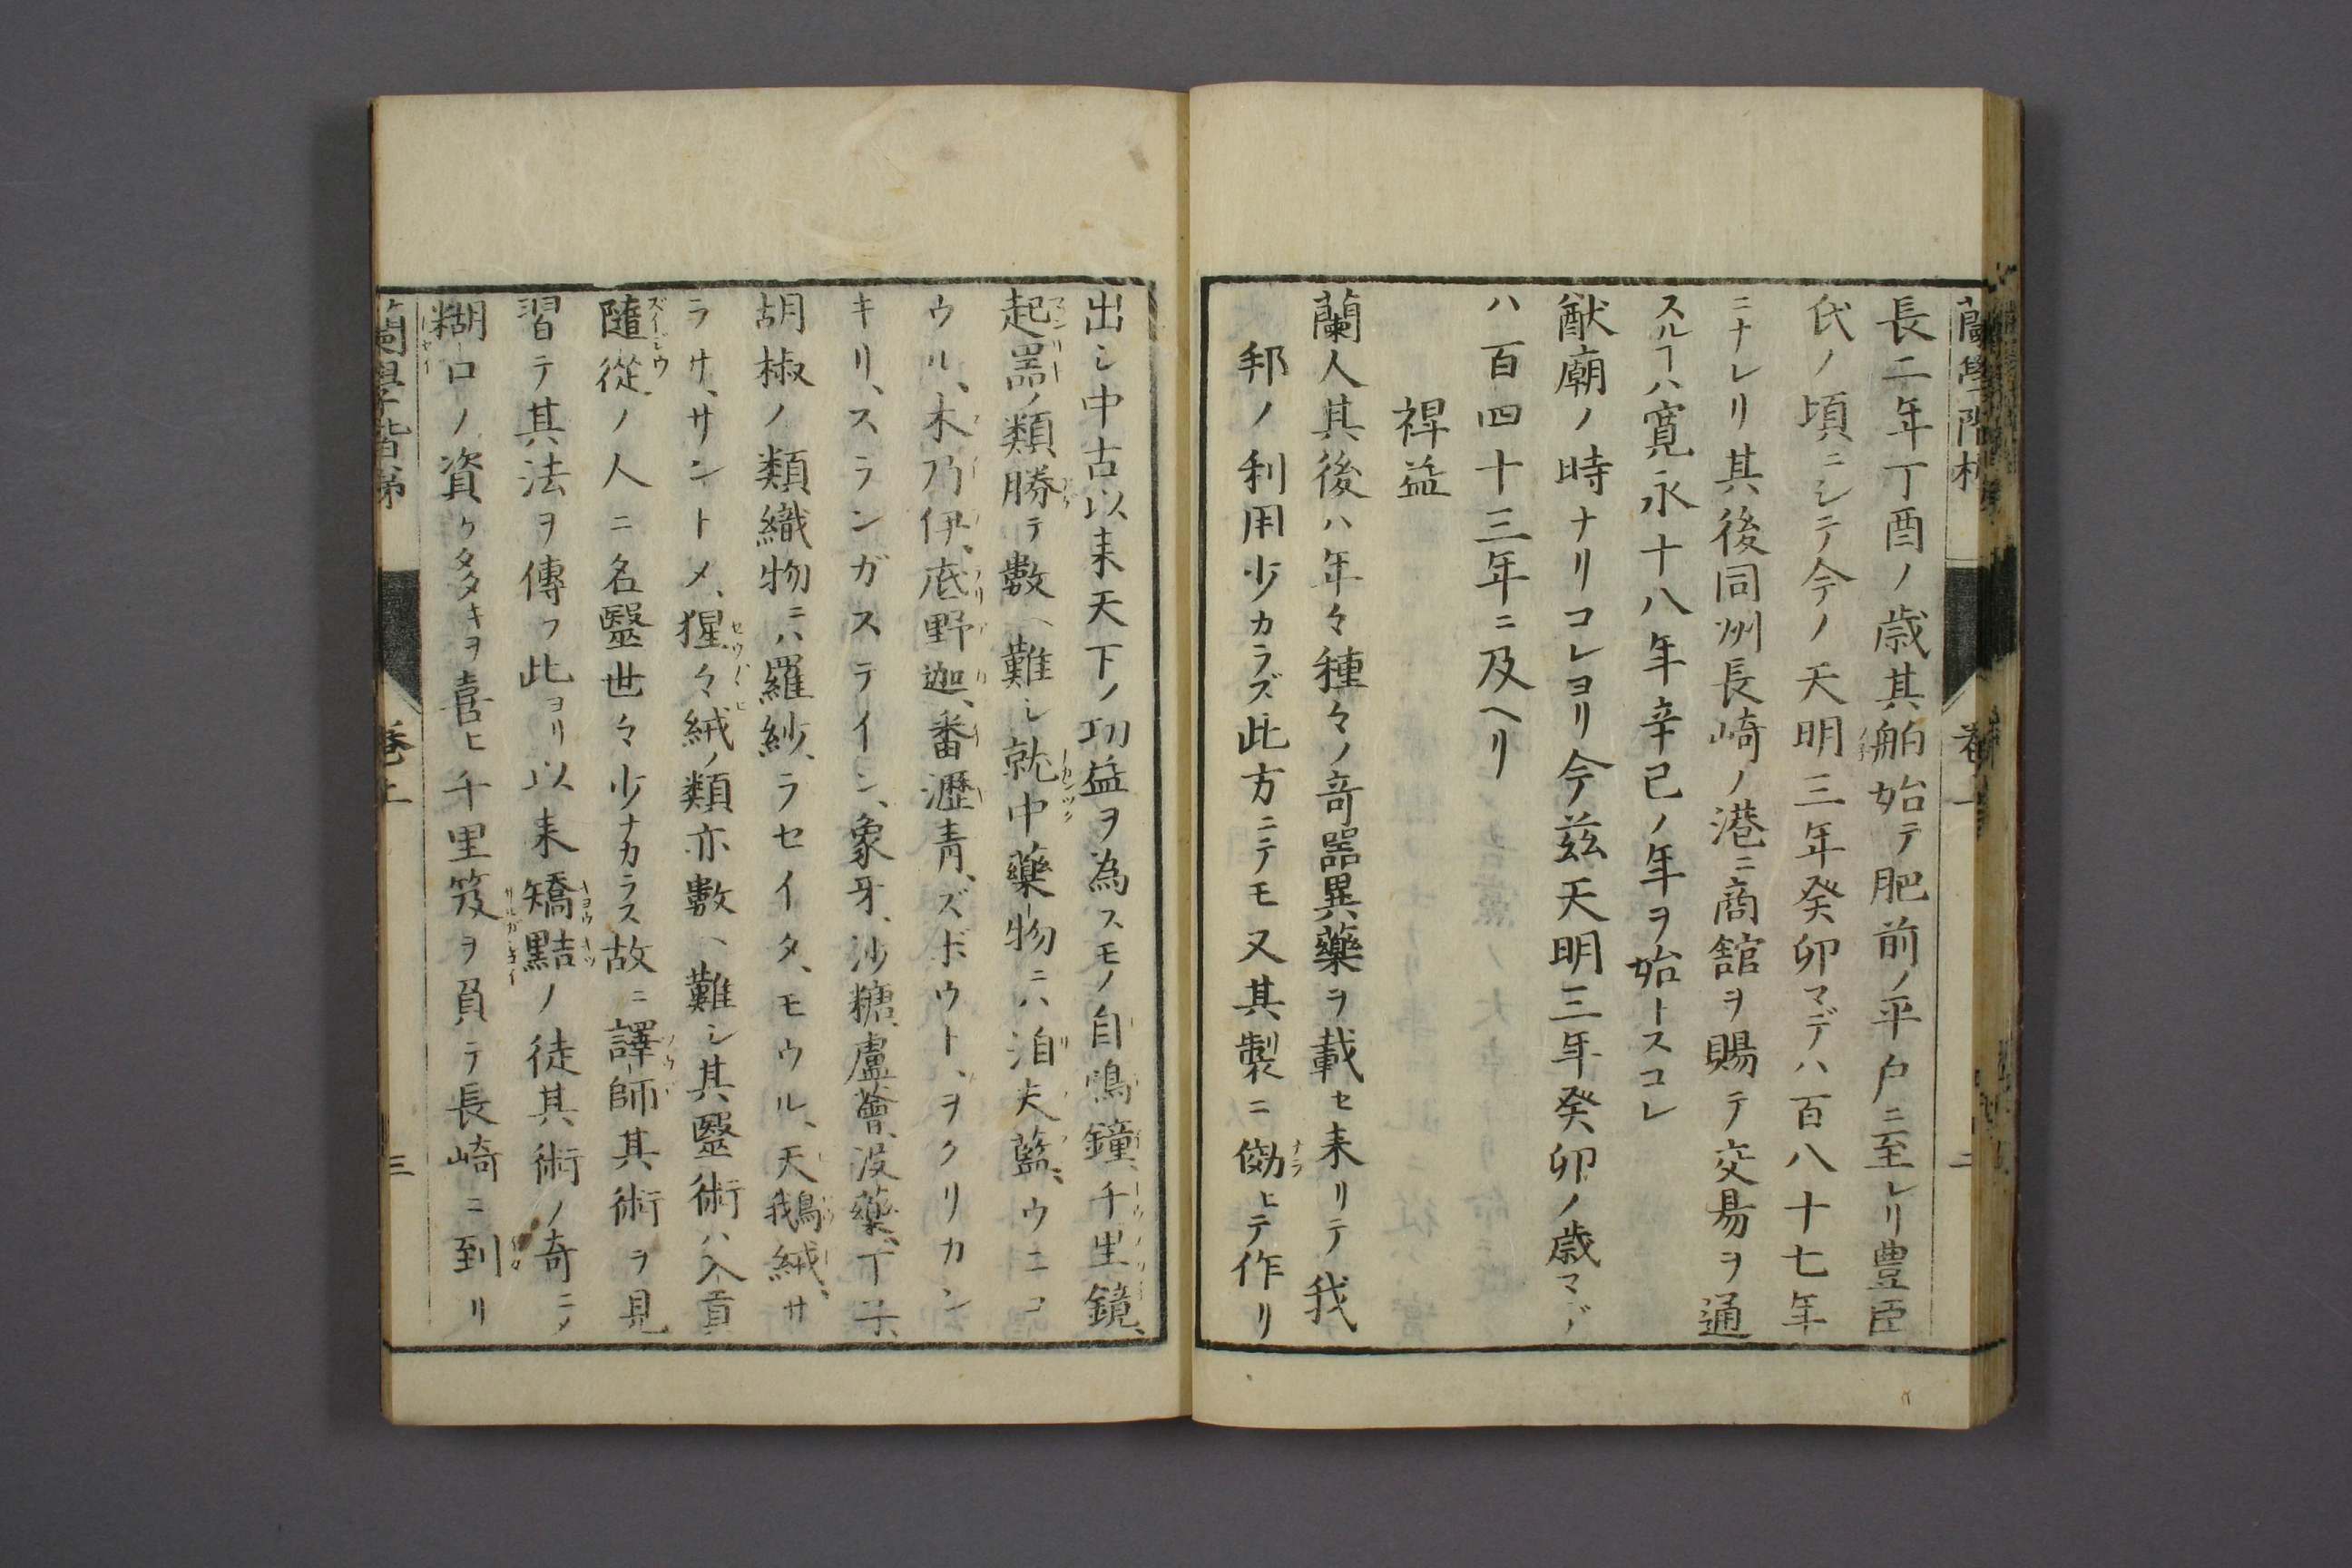 長二年丁酉ノ歳其舶始テ肥前ノ平戸ニ至レリ豊臣
氏ノ頃ニシテ今ノ天明三年癸卯マデハ百八十七年
ニナレリ其後同州長崎ノ港ニ商舘ヲ賜テ交易ヲ通
スルヿハ寛永十八年辛巳ノ年ヲ始トスコレ
猷廟ノ時ナリコレヨリ今茲天明三年癸卯ノ歳マデ
ハ百四十三年ニ及ヘリ
裨益
蘭人其後ハ年々種々ノ奇噐異藥ヲ載セ来リテ我
邦ノ利用少カラズ此方ニテモ又其製ニ傚ヒテ作リ
出シ中古以来天下ノ功益ヲ為スモノ自鳴鐘、千里鏡、
起噐ノ類勝テ數ヘ難シ就中藥物ニハ洎夫藍、ウニコ
ウル、木乃伊、底野迦、番瀝青、ズボウト、ヲクリカン
キリ、スランガステイン、象牙、沙糖、盧薈、没藥、丁子、
胡椒ノ類織物ニハ羅紗、ラセイタ、モウル、天鵞絨、サ
ラサ、サントメ、猩々絨ノ類亦數ヘ難シ其醫術ハ入貢
隨從ノ人ニ名醫世々少ナカラス故ニ譯師其術ヲ見
習テ其法ヲ傳フ此ヨリ以来矯黠ノ徒其術ノ奇ニメ
糊口ノ資ケ多キヲ喜ヒ千里笈ヲ負テ長崎ニ到リ
蘭學階梯
巻上
三